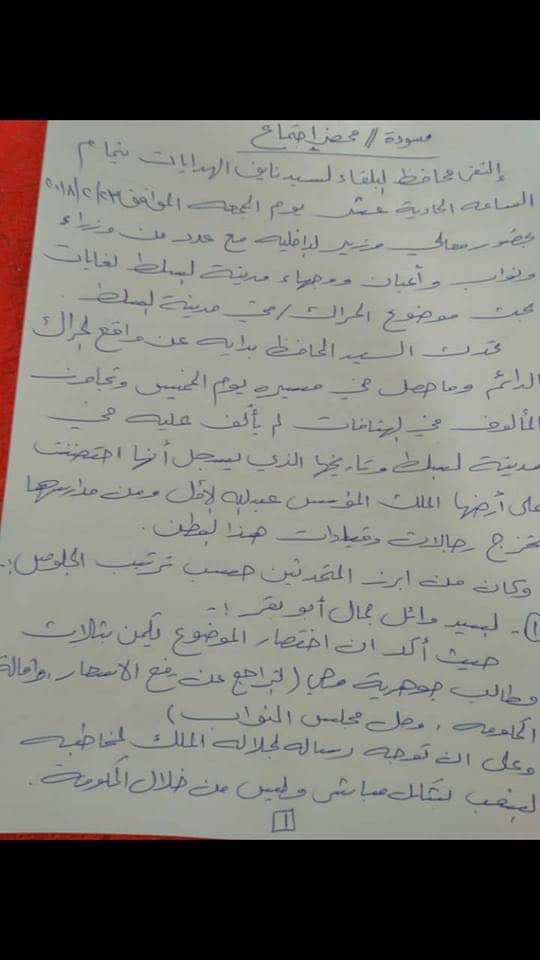 مسودة // محضر إجتماع
إلتقى محافظ البلقاء السيد نايف الهدايات بتمام
الساعه الحادية عشر يوم الجمعه الموافق ٢٠١٨/٢/٢٣
بحضور معالي وزير الداخليه مع عدد من وزراء
ونواب وأعيان ووجهاء مدينة السلط لغايات
بحث موضوع الحراك / في مدينة السلط.
تحدث السيد المحافظ بدايه عن واقع الحراك
الدائم وما حصل في مسيره يوم الخميس وتجاوزت
المألوف في الهتافات لم يألف عليه في
مدينة السلط وتاريخها الذي يسجل أنها احتضنت
على أرضها الملك المؤسس عبدالله الأول ومن مدارسها
تخرج رجالات وقيادات هذا الوطن.
وكان من ابرز المتحدثين حسب ترتيب الجلوس :-
١- السيد وائل جمال أبو بقر :-
حيث أكد ان اختصار الموضوع يكمن بثلاث
مطالب جوهرية وهي (التراجع عن رفع الاسعار، واقالة
الحكومه، وحل مجلس النواب)
وعلى ان توجه رساله لجلاله الملك لمخاطبه
الشعب بشكل مباشر وليس من خلال الحكومة.
١